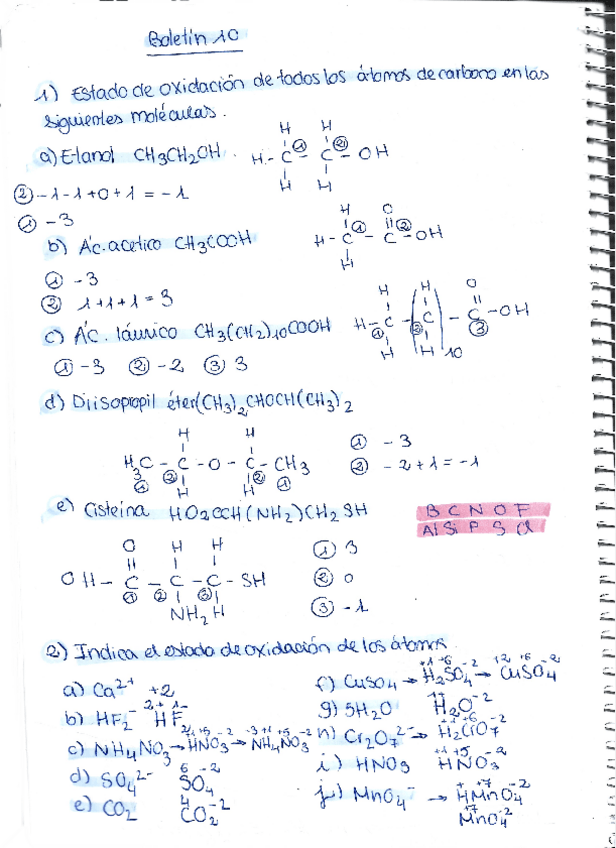 Boletín 10
1) Estado de oxidación de todos los átomos de carbono en las
siguientes moléculas.
a) Etanol CH3CH2OH.
H H
H - C ① - C ② - OH
H H
② -1-1+0+1 = -1
① -3
b) Ác. acetico CH3COOH
H O
H - C ① - C ② - OH
H
① -3
② 1+1+1 = 3
c) Ác. láurico CH3(CH2)10COOH
H H O
H - C - ( C ) - C - OH
① ② ③
H H 10
① -3 ② -2 ③ 3
d) Diisopropil éter (CH3)2CHOCH(CH3)2
H H
H3C - C - O - C - CH3
① ② ② ①
H H
① -3
② -2+1 = -1
e) Cisteína HO2CCH(NH2)CH2SH
B C N O F
Al Si P S Cl
O H H
OH - C - C - C - SH
① ② ③
NH2 H
① 3
② 0
③ -1
2) Indica el estado de oxidación de los átomos.
a) Ca2+ +2
b) HF2-
c) NH4NO3 → HNO3 → NH4NO3
d) SO4 2- 6 -2 SO4
e) CO2 4 -2 CO2
f) CuSO4 → +1 +6 -2 H2SO4 → CuSO4
g) 5H2O H2O -2
h) Cr2O7 2- →
i) HNO3 +1 +5 -2 HNO3
j) MnO4- → + +7 -2 HMnO4
+7 -2 MnO4